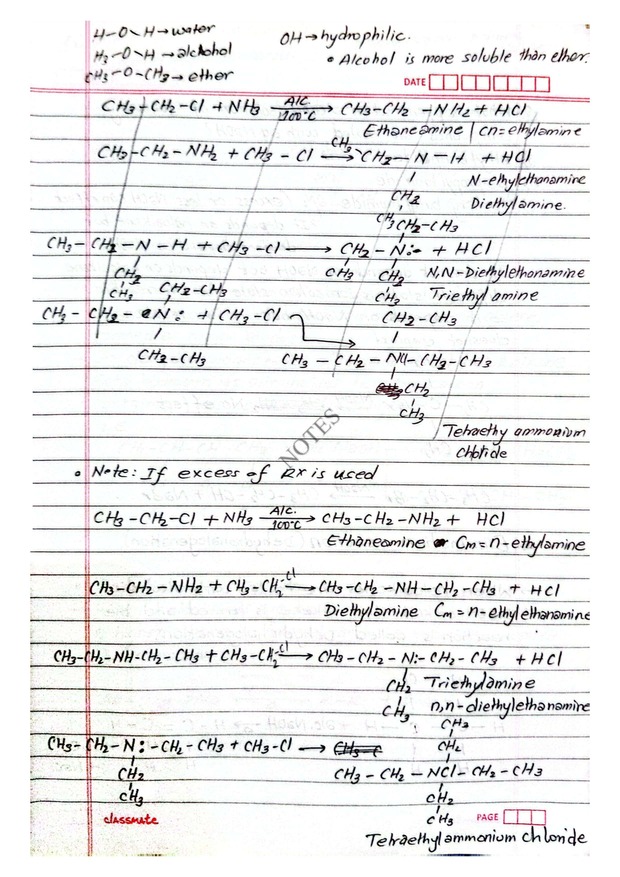 H-O-H→water
OH→hydrophilic.
H3-O-H→alcohol
• Alcohol is more soluble than ether.
CH3-O-CH3→ether
DATE
CH3-CH2-Cl + NH3 Alc. 100°C → CH3-CH2-NH2 + HCl
Ethaneamine | cn=ethylamine
CH3-CH2-NH2 + CH3-Cl → CH3 CH2-N-H + HCl
N-ethylethanamine
CH2
Diethylamine.
CH3 CH2-CH3
CH3-CH2-N-H + CH3-Cl → CH2-N: + HCl
CH2 CH3 CH2 N,N-Diethylethonamine
CH3 CH2-CH3 CH3 Triethyl amine
CH3-CH2-N: + CH3-Cl CH2-CH3
CH2-CH3 CH3-CH2-NCl-CH2-CH3
CH2
CH3
NOTES
Tetraethy ammonium
chlotide
• Note: If excess of RX is used
CH3-CH2-Cl + NH3 Alc. 100°C → CH3-CH2-NH2 + HCl
Ethaneamine or Cm=n-ethylamine
CH3-CH2-NH2 + CH3-CH2-Cl → CH3-CH2-NH-CH2-CH3 + HCl
Diethylamine Cm=n-ethylethanamine
CH3-CH2-NH-CH2-CH3 + CH3-CH2-Cl → CH3-CH2-N:-CH2-CH3 + HCl
CH2 Triethylamine
CH3 n,n-diethylethanamine
CH3
CH3-CH2-N:-CH2-CH3 + CH3-Cl → CH2
CH2 CH3-CH2-NCl-CH2-CH3
CH3 CH2
classmate CH3 PAGE
Tetraethylammonium chloride